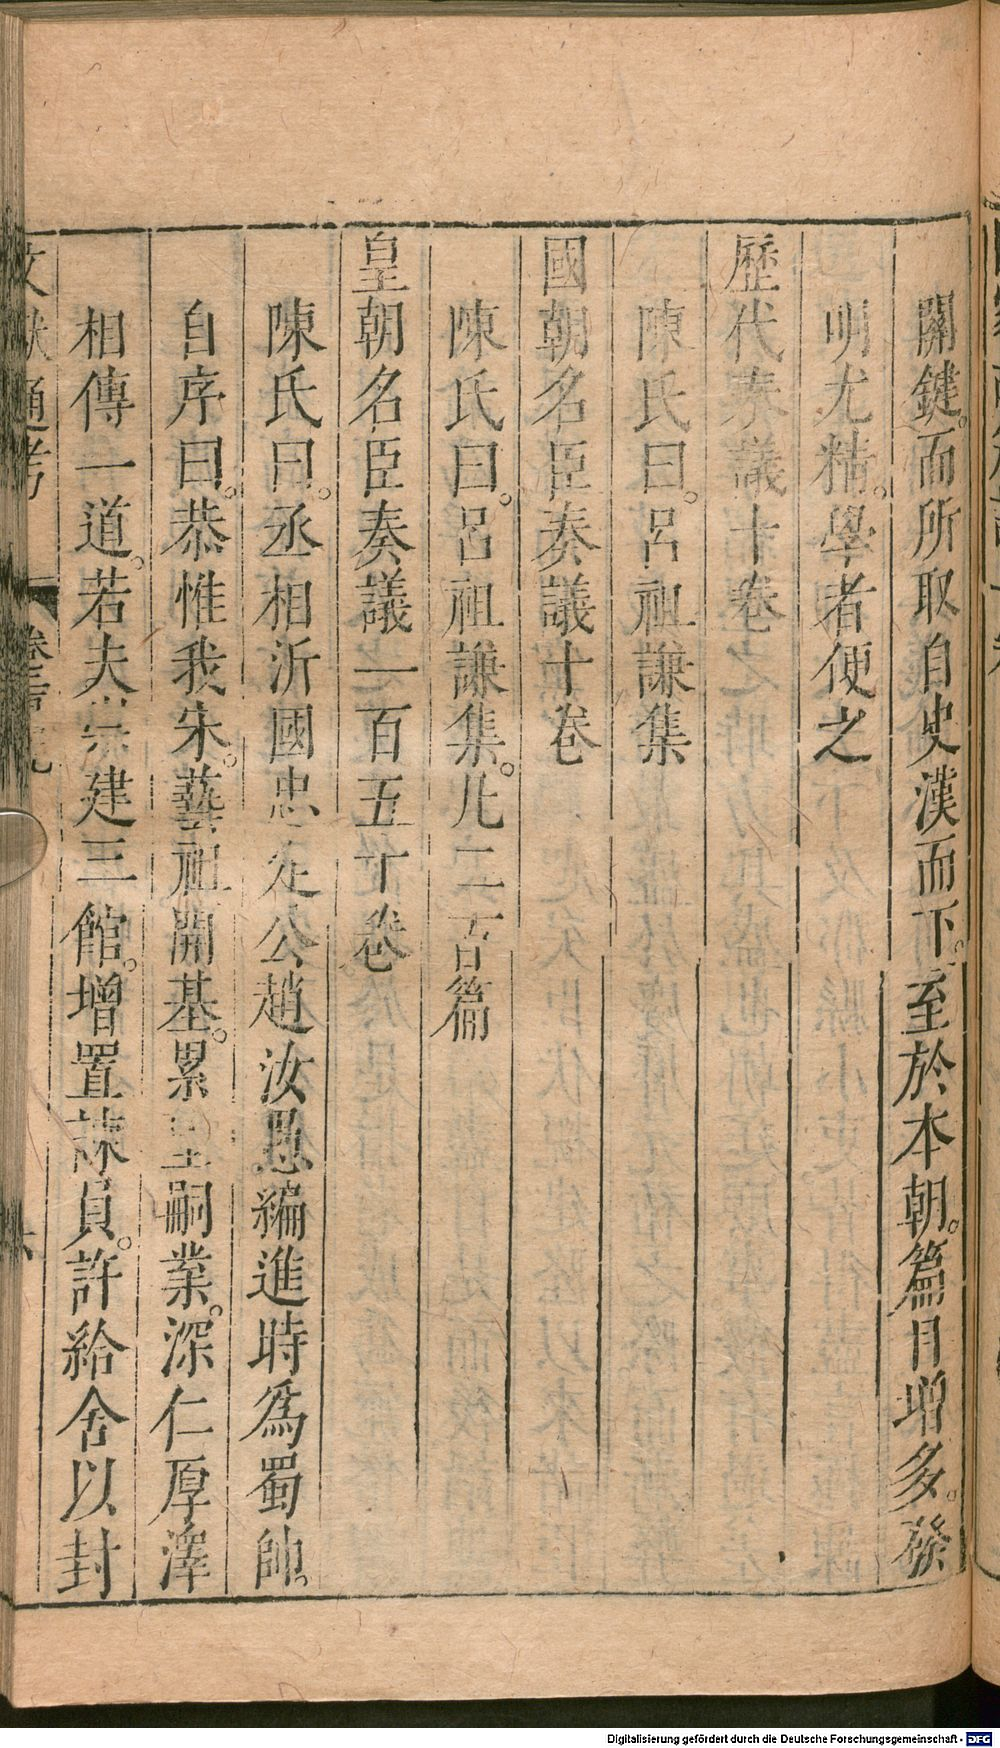 關鍵。而所取自史漢而下。至於本朝。篇目增多。發
明尤精。學者便之
歷代奏議十卷
陳氏曰。呂祖謙集
國朝名臣奏議十卷
陳氏曰。呂祖謙集。凡二百篇
皇朝名臣奏議一百五十卷
陳氏曰。丞相沂國忠定公趙汝愚編進時爲蜀帥。
自序曰。恭惟我宋。藝祖開基。累聖嗣業。深仁厚澤
相傳一道。若夫崇建三館。增置諫員。許給舍以封
文獻通考
Digitalisierung gefördert durch die Deutsche Forschungsgemeinschaft - DFG